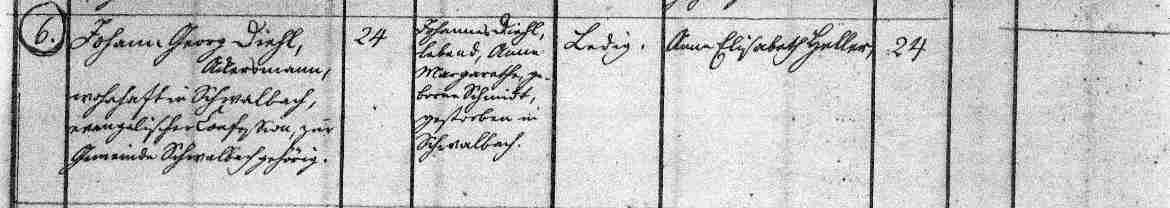 6.
Johann Georg Diehl,
Ackersmann,
wohnhaft in Schwalbach,
evangelischer Confession, zur
Gemeinde Schwalbach gehörig.
24
Johannes Diehl,
lebend, Anna
Margarethe, ge-
borne Schmidt,
gestorben in
Schwalbach.
Ledig.
Anna Elisabeth Heller,
24